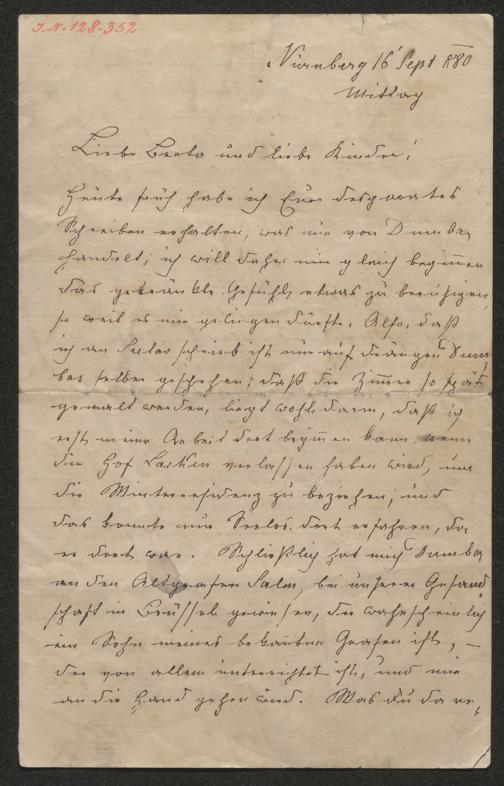 J.N. 128.352
Nürnberg 16 Sept 880
Mittag
Liebe Berta und liebe Kinder!
Heute früh habe ich Eure desparates
Schreiben erhalten, was nur von Dumba
handelt; ich will daher nun gleich beginnen
das gekränkte Gefühl etwas zu beruhigen,
so weit es mir gelingen dürfte. Also, daß
ich an Salos schrieb ist nur auf drängen Dum
bas selber geschehen; daß die Zimmer so spät
gemalt werden, liegt wohl darin, daß ich
erst meine Arbeit dort beginnen kann wenn
der Hof Laeken verlassen haben wird, um
die Winterresidenz zu beziehen, und
das konnte nur Seelos dort erfahren, da
er dort war. Schließlich hat mich Dumba
an den Altgrafen Salm, bei unserer Gesand
schaft in Brüssel gewiesen, der wahrscheinlich
ein Sohn meines bekannten Grafen ist, –
der von allem unterrichtet ist, und mir
an die Hand gehen wird. Was Du da ver